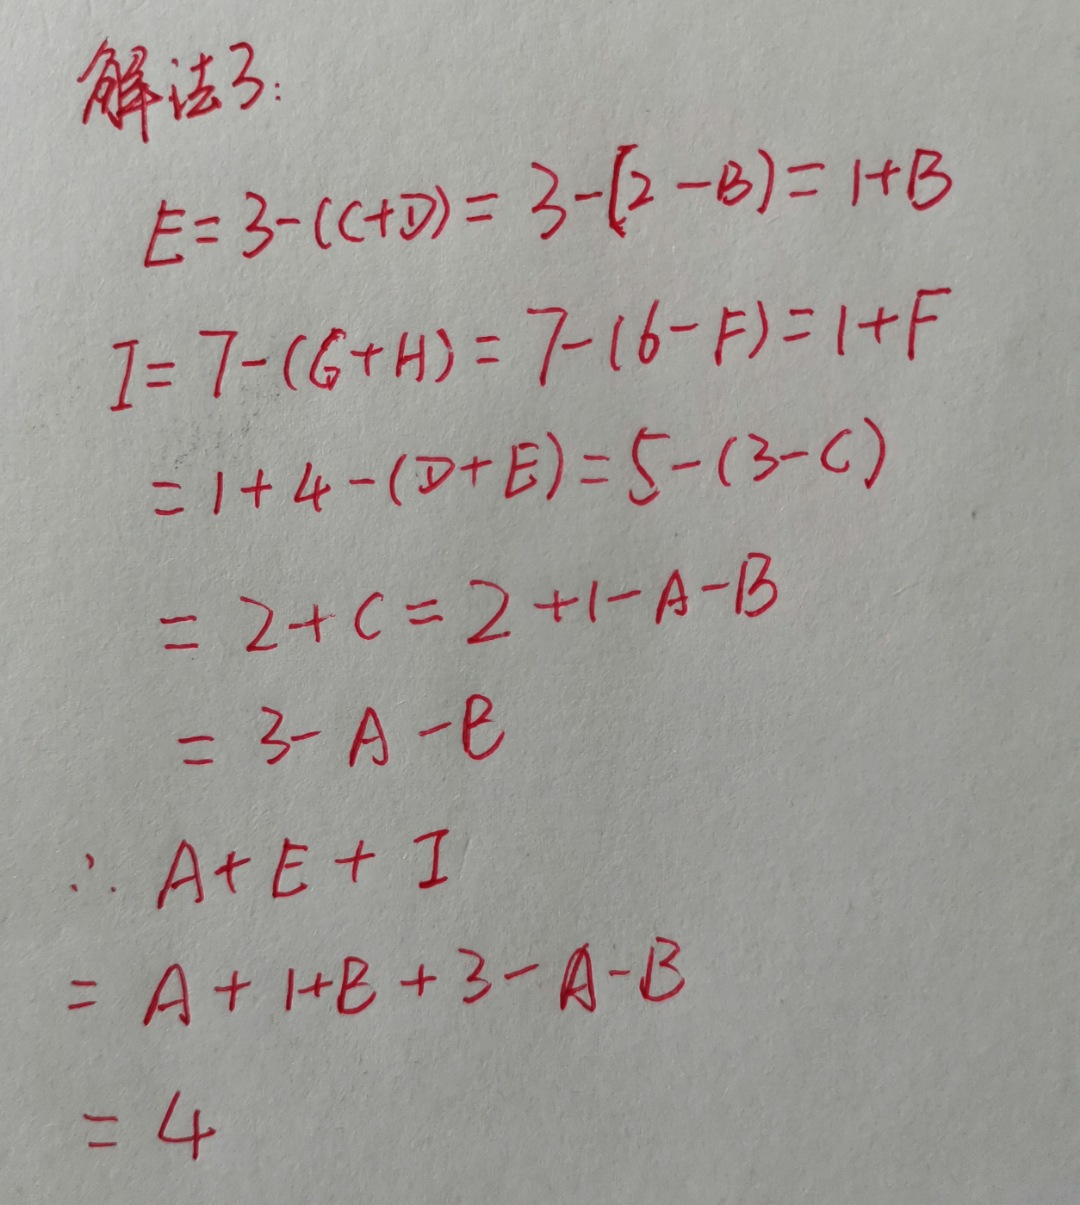 解法3:
E=3-(C+D)=3-(2-B)=1+B
I=7-(G+H)=7-(6-F)=1+F
=1+4-(D+E)=5-(3-C)
=2+C=2+1-A-B
=3-A-B
∴A+E+I
=A+1+B+3-A-B
=4